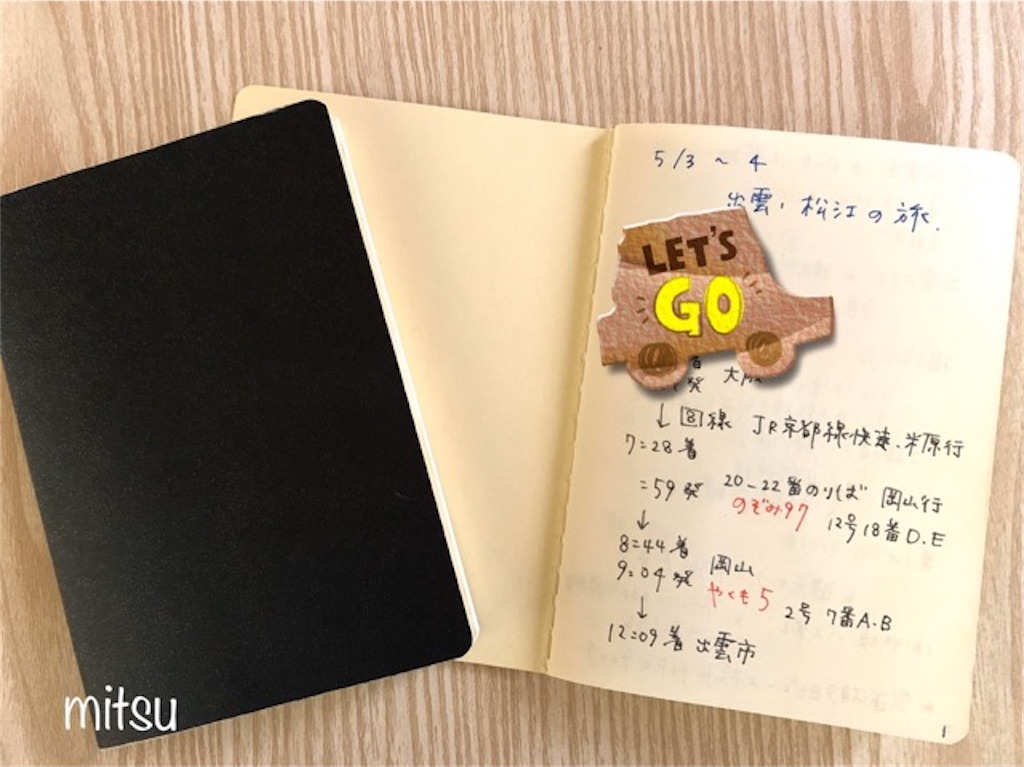 5/3 ~ 4
出雲・松江の旅.
LET'S
GO
発 大阪
↓ 8線 JR京都線快速、米原行
7=28 着
=59 発 20-22番のりば 岡山行
のぞみ97 12号18番D.E
↓
8=44 着
9=04 発 岡山
↓ やくも5 2号 7番A.B
12=09 着 出雲市
1
mitsu